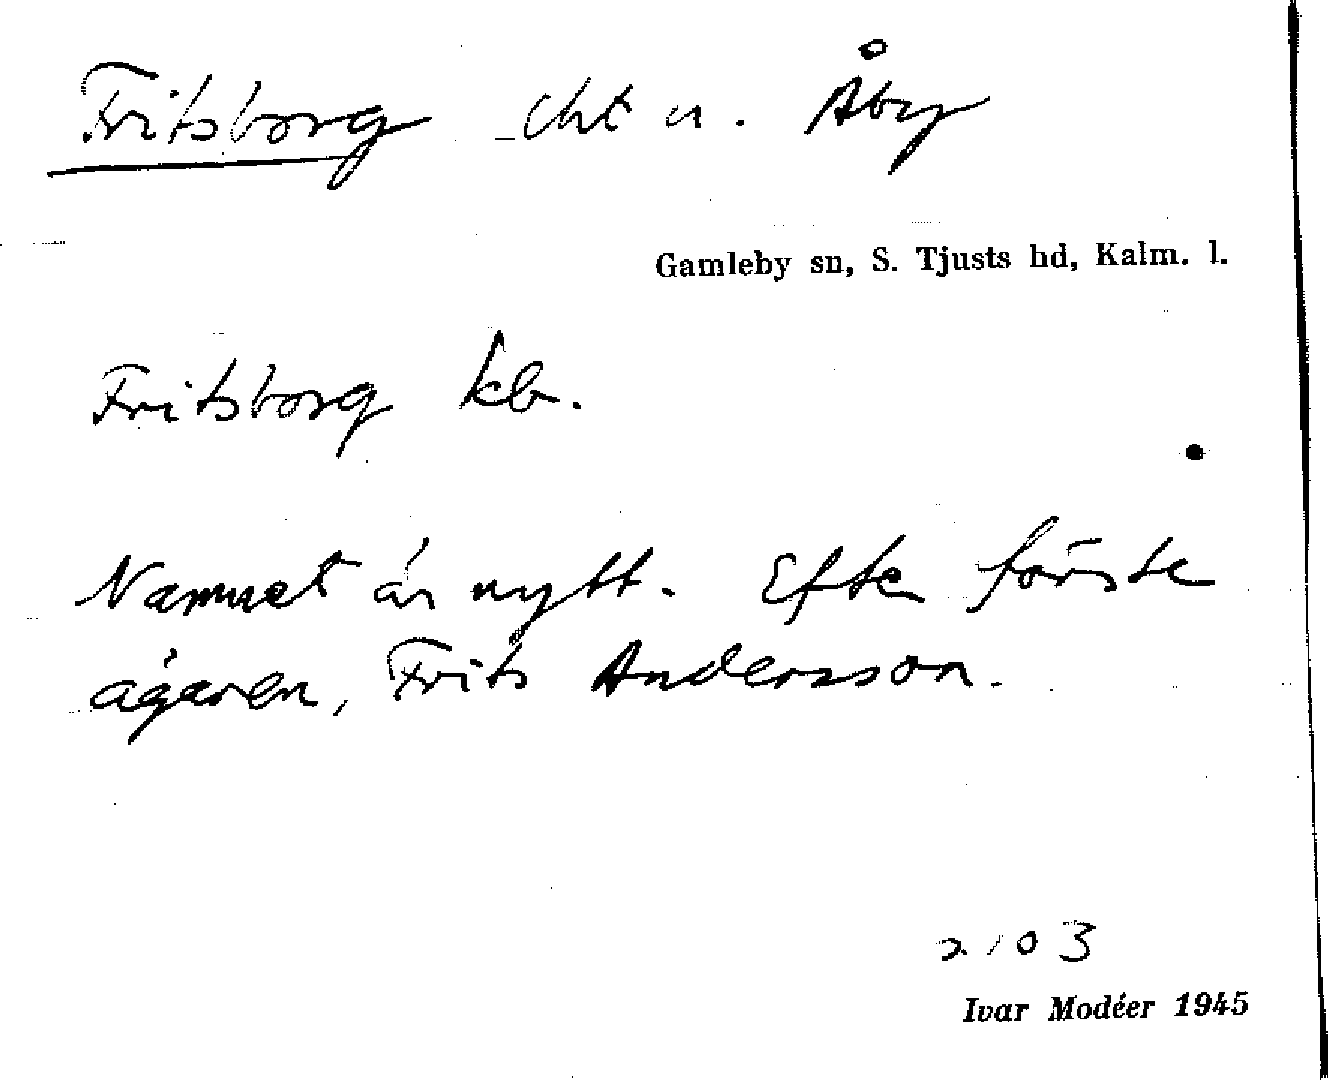 Fritsborg lht u. Åby
Gamleby sn, S. Tjusts hd, Kalm. l.
Fritsborg kb.
Namnet är nytt. Efter förste
ägaren, Frits Andersson.
2103
Ivar Modéer 1945